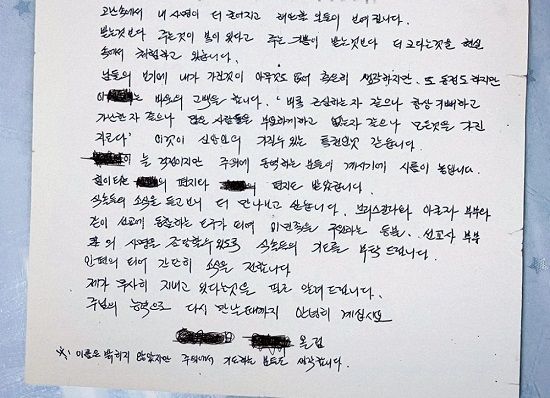 고난속에서 내 사명이 더 굳어지고 해야할 일들이 보여집니다.
받는것보다 주는것이 복이 있다고 주는 기쁨이 받는것보다 더 크다는것을 현실
속에서 체험하고 있습니다.
남들이 보기에 내가 가진것이 아무것도 없어 측은히 생각하지만, 또 동정도 하지만
는 바울의 고백을 합니다. '비록 근심하는자 같으나 항상 기뻐하고
가난한 자 같으나 많은 사람들을 부요하게하고 없는자 같으나 모든것을 가진
자로다' 이것이 신앙인의 가질수 있는 특권인것 같습니다.
이 늘 걱정이지만 주위에 동역하는 분들이 계시기에 시름이 놓입니다.
힘이 되는 의 편지나 의 편지도 받았습니다.
식솔들의 소식을 듣고보니 더 만나보고 싶습니다. 브리스길라와 아굴라 부부와
같이 선교에 동참하는 도구가 되여 이 민족을 구원하는 동분, 선교사 부부
의 사명을 감당할수 있도록 식솔들의 기도를 부탁 드립니다.
인편이 되여 간단히 소식을 전합니다
제가 무사히 지내고 있다는것을 알려 드립니다.
주님의 능력으로 다시 만날때까지 안녕히 계십시요
올림
※: 이름은 밝히지 않았지만 주위에서 기도하는 분들도 생각합니다.